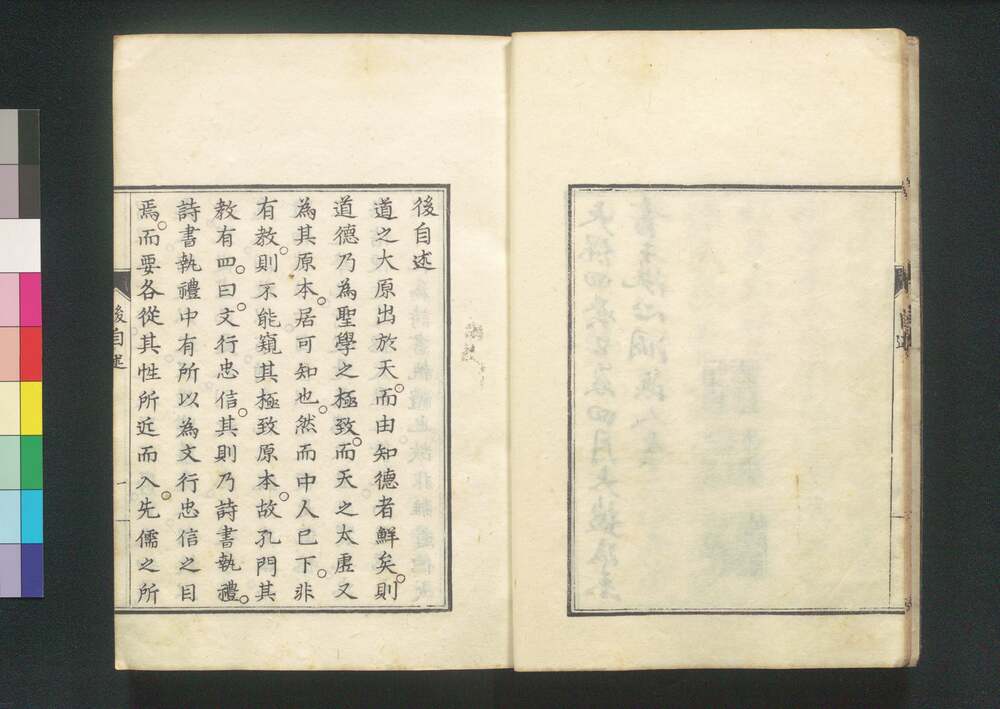 後自述
道之大原出於天。而由知德者鮮矣。則
道德乃為聖學之極致。而天之太虛又
為其原本。居可知也。然而中人已下。非
有教。則不能窺其極致原本。故孔門其
教有四。曰。文行忠信。其則乃詩書執禮。
詩書執禮中有所以為文行忠信之目
焉。而要各從其性所近而入。先儒之所
後自述
一